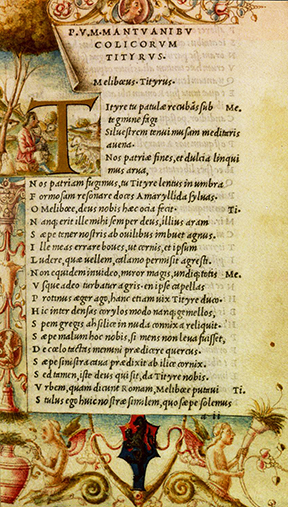 P. V. M. MANTVANI BV
COLICORVM
TITYRVS.
Meliboeus. Tityrus.
TItyre tu patulæ recubãs sub Me.
tegmine fagi
Siluestrem tenui musam meditaris
auena.
Nos patriæ fines, et dulcia linqui
mus arua,
Nos patriam fugimus, tu Tityre lentus in umbra
Formosam resonare doces Amaryllida syluas.
O Meliboee, deus nobis hæc ocia fecit. Ti.
Nanq; erit ille mihi semper deus, illius aram
Sæpe tener nostris ab ouilibus imbuet agnus.
Ille meas errare boues, ut cernis, et ipsum
Ludere, quæ uellem, calamo permisit agresti.
Non equidem inuideo, miror magis, undiq; totis Me.
Vsque adeo turbatur agris. en ipse capellas
Protinus æger ago, hanc etiam uix Tityre duco.
Hic inter densas corylos modo nanq; gemellos,
Spem gregis ah silice in nuda connixa reliquit.
Sæpe malum hoc nobis, si mens non leua fuisset,
De cœlo tactas memini prædicere quercus.
Sæpe sinistra caua prædixit ab ilice cornix.
Sed tamen, iste deus qui sit, da Tityre nobis.
Vrbem, quam dicunt Romam, Meliboee putaui Ti.
Stultus ego huic nostræ similem, quo sæpe solemus
a ii